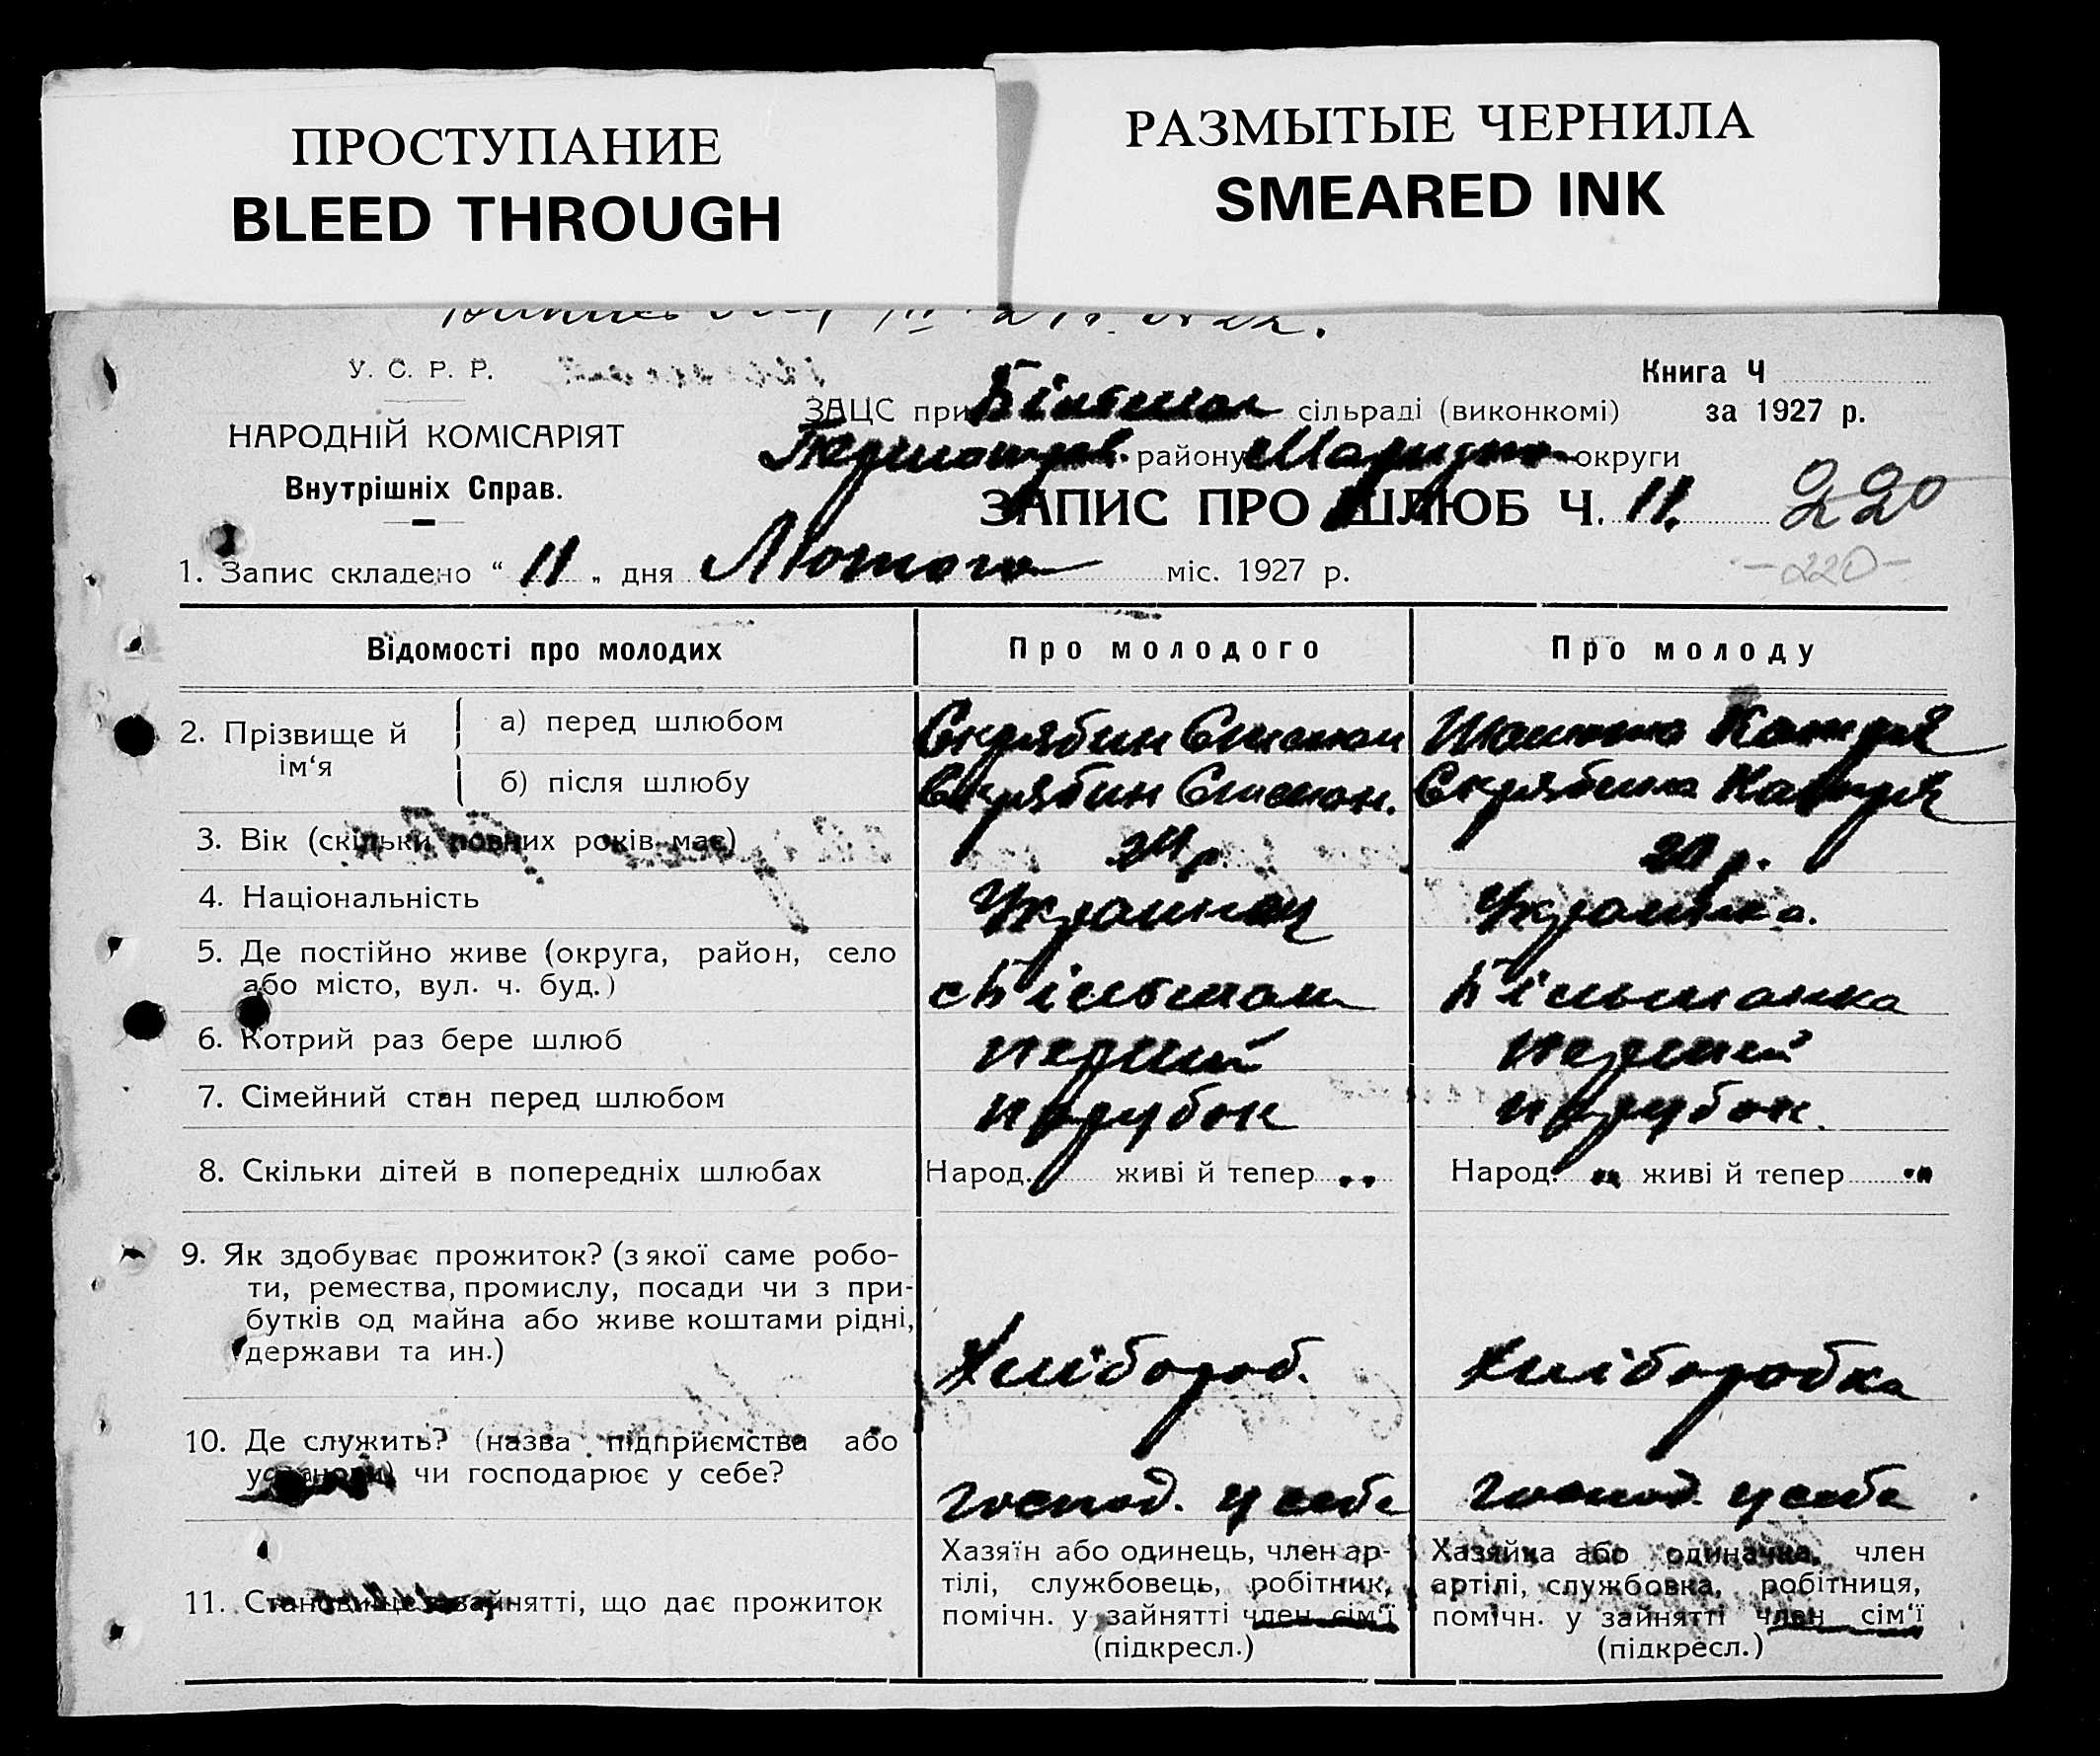 ПРОСТУПАНИЕ
BLEED THROUGH
РАЗМЫТЫЕ ЧЕРНИЛА
SMEARED INK
У. С. Р. Р.
НАРОДНІЙ КОМІСАРІЯТ
Внутрішніх Справ.
Книга Ч
за 1927 р.
ЗАЦС при сільраді (виконкомі)
району округи
ЗАПИС ПРО ШЛЮБ Ч. 11. 220
-220-
1. Запис складено “ 11 „ дня Лютого міс. 1927 р.
Відомості про молодих
Про молодого
Про молоду
2. Прізвище й ім‘я
а) перед шлюбом
Скрябин
Катря
б) після шлюбу
Скрябин Скрябина Катря
3. Вік (скільки повних років має)
24 р. 20 р.
4. Національність
Українець Українка.
5. Де постійно живе (округа, район, село
або місто, вул. ч. буд.)
Більманка
6. Котрий раз бере шлюб
перший перший
7. Сімейний стан перед шлюбом
парубок парубок.
8. Скільки дітей в попередніх шлюбах
Народ. живі й тепер
Народ. живі й тепер
9. Як здобуває прожиток? (з якої саме робо-
ти, ремества, промислу, посади чи з при-
бутків од майна або живе коштами рідні,
держави та ин.)
Хлібороб. Хліборобка
10. Де служить? (назва підприємства або
установи) чи господарює у себе?
Господ. у себе Господ. у себе
11. Становище в зайнятті, що дає прожиток
Хазяїн або одинець, член ар-
тілі, службовець, робітник,
помічн. у зайнятті член сім‘ї
(підкресл.)
Хазяйка або одиначка, член
артілі, службовка, робітниця,
помічн. у зайнятті член сім‘ї
(підкресл.)